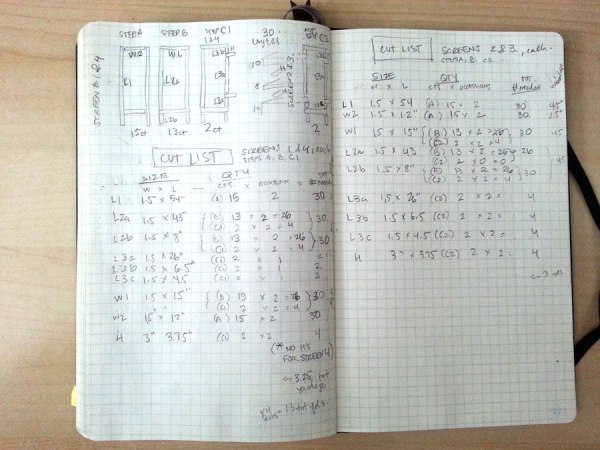 STEP A STEP B STEP C1 30 STEP C2
1&4 LAYERS
SCREEN 1 & 4
W2 W1
L1 L2a L3a
L2b L3b
15ct 13ct 2ct
10
8
10
SCREEN 2&3
L3a
2
CUT LIST SCREENS 1&4, each
STEPS A, B, C1
SIZE QTY TOT
W x L CTS x LOCATIONS =
L1 1.5 x 54" (A) 15 2 30
L2a 1.5 x 43" (B) 13 x 2 = 26 30
(C1) 2 x 2 = 4
L2b 1.5 x 8" (B) 13 x 2 = 26 30
(C1) 2 x 2 = 4
L3a 1.5 x 26" (C1) 2 x 1 2
L3b 1.5 x 6.5" (C1) 2 x 1 2
L3c 1.5 x 4.5 (C1) 2 x 1 2
W1 1.5 x 15" (B) 13 x 2 = 26 30
(C1) 2 x 2 = 4
W2 1.5 x 12" (A) 15 x 2 30
H 3" 3.75" (C1) 2 x 2 4
(* NO H'S
FOR SCREEN 4)
~ 3.25 tot
yardage
x4
= 13 tot yds.
CUT LIST SCREENS 2 & 3, each.
STEPS A, B, C2
SIZE QTY TOT
W x L CTS x LOCATIONS
L1 1.5 x 54 (A) 15 x 2 30 45"
W2 1.5 x 12" (A) 15 x 2 30 15"
W1 1.5 x 15" (B) 13 x 2 = 26 30 45
(C2) 2 x 2 = 4
L2a 1.5 x 43 (B) 13 x 2 = 26 26
(C2) 2 x 0 = 0
L2b 1.5 x 8" (B) 13 x 2 = 26 30 45
(C2) 2 x 2 = 4
L3a 1.5 x 26" (C2) 2 x 2 = 4
L3b 1.5 x 6.5 (C2) 2 x 2 = 4
L3c 1.5 x 4.5 (C2) 2 x 2 = 4
H 3" x 3.75 (C2) 2 x 2 = 4
~ 3 yds